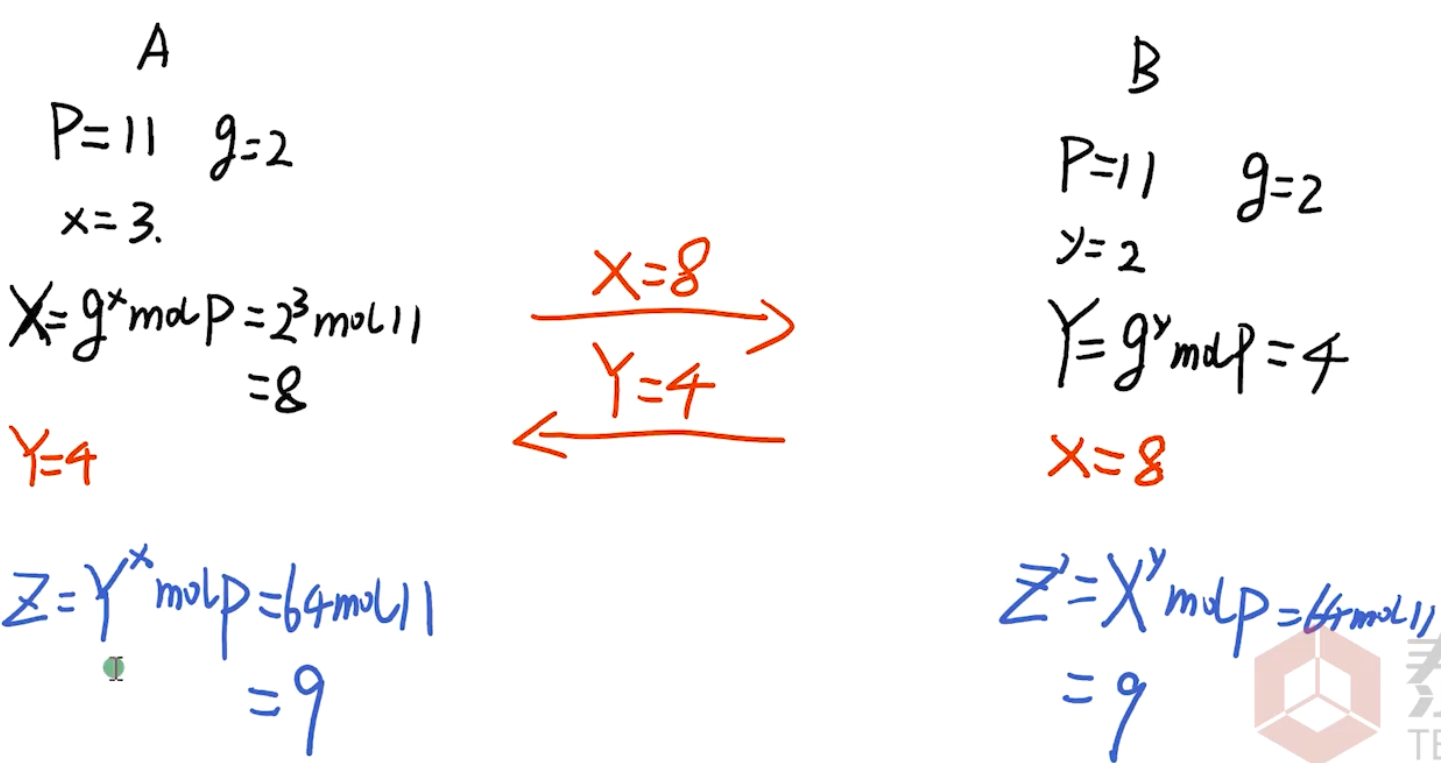 A
P=11 g=2
x=3.
X=g^x mod P=2^3 mod 11
=8
Y=4
Z=Y^x mod P=64 mod 11
=9
X=8
Y=4
B
P=11 g=2
y=2
Y=g^y mod P=4
X=8
Z'=X^y mod P=64 mod 11
=9